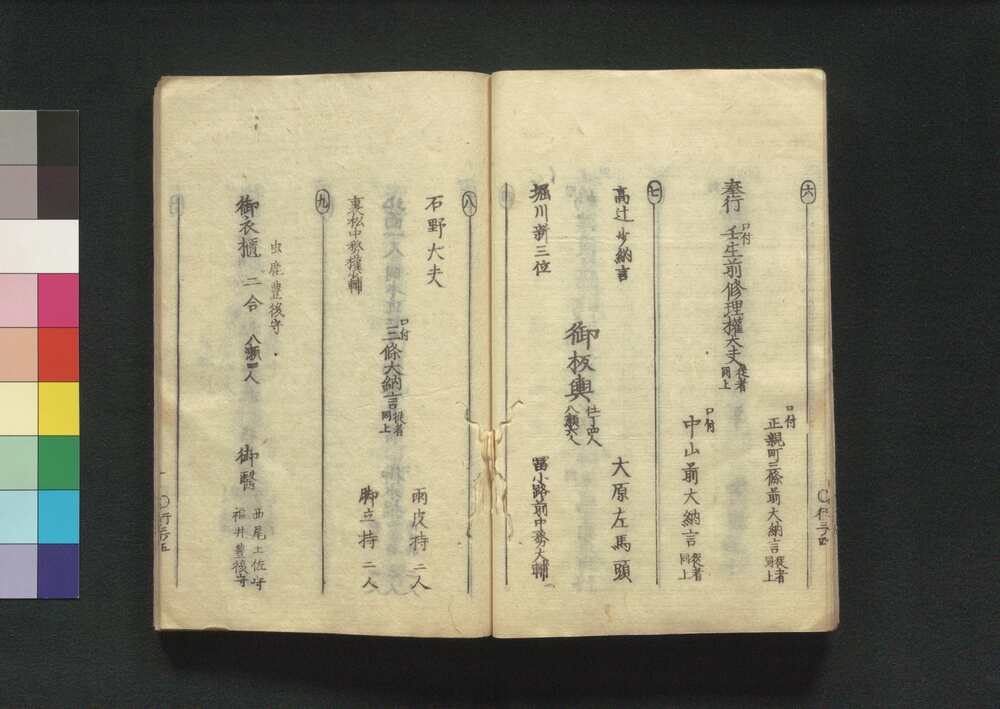 六
口付
正親町三條前大納言 従者同上
奉行
口付
壬生前修理權大夫 従者同上
口付
中山前大納言 従者同上
七
高辻少納言
大原左馬頭
御板輿 仕丁四人 八瀬六人
堀川新三位
冨小路前中務大輔
八
石野大夫
雨皮持 二人
口付
三條大納言 従者同上
東松中務權少輔
脚立持 二人
九
虫鹿豊後守
御衣櫃 二合 八瀬 人
御醫 西尾土佐守 福井豊後守